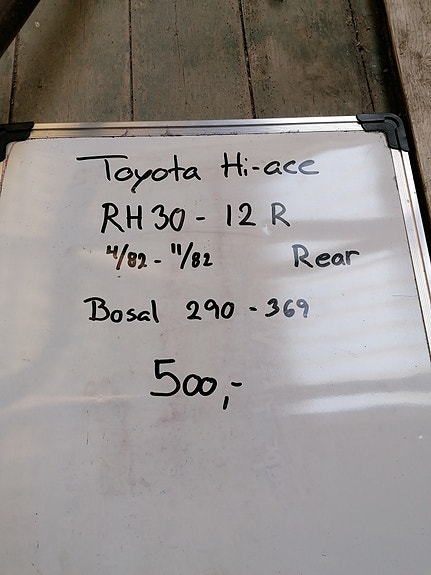 Toyota Hi-ace
RH30 - 12R
4/82 - 11/82 Rear
Bosal 290 - 369
500,-